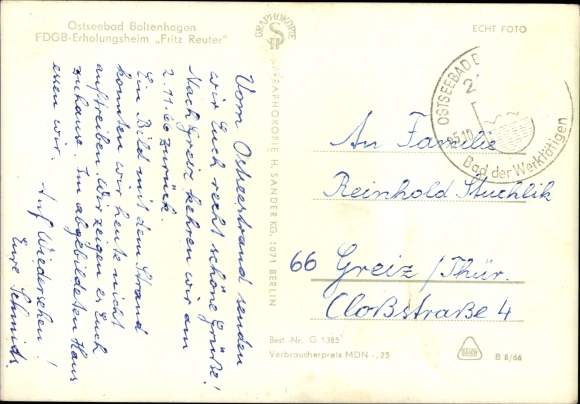 Ostseebad Boltenhagen
FDGB-Erholungsheim „Fritz Reuter"
Vom Ostseestrand senden
wir Euch recht schöne Grüße!
Nach Greiz kehren wir am
2.11.66 zurück.
Ein Bild mit dem Strand
konnten wir heute nicht
auftreiben. Wir zeigen es Euch
zuhause. Im abgebildeten Haus
essen wir.
Auf Wiedersehen!
Eure Schmidts.
GRAPHOKOPIE
GRAPHOKOPIE H. SANDER KG, 1071 BERLIN
ECHT FOTO
OSTSEEBAD
Bad der Werktätigen
An Familie
Reinhold Stuchlik
66 Greiz /Thür.
Cloßstraße 4
Best.-Nr. G 1385
Verbraucherpreis MDN -,25
B 8/66